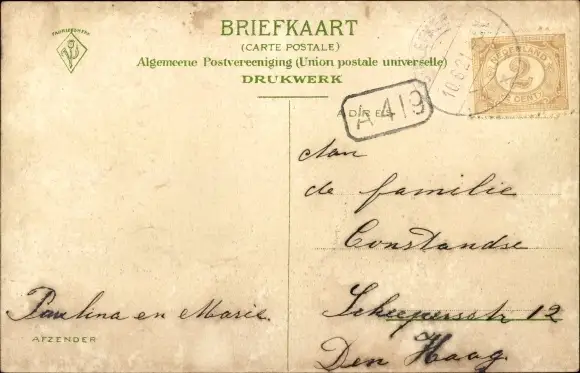 FABRIEKMERK
BRIEFKAART
(CARTE POSTALE)
Algemeene Postvereeniging (Union postale universelle)
DRUKWERK
NEDERLAND
2
CENT
10.6.21
ADRES
A 419
Aan
de familie
Constandse
Scheepersstr 12
Den Haag
Paulina en Marie
AFZENDER